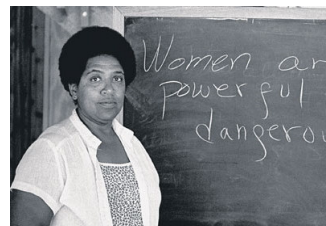 Women ar
powerful
dangerou